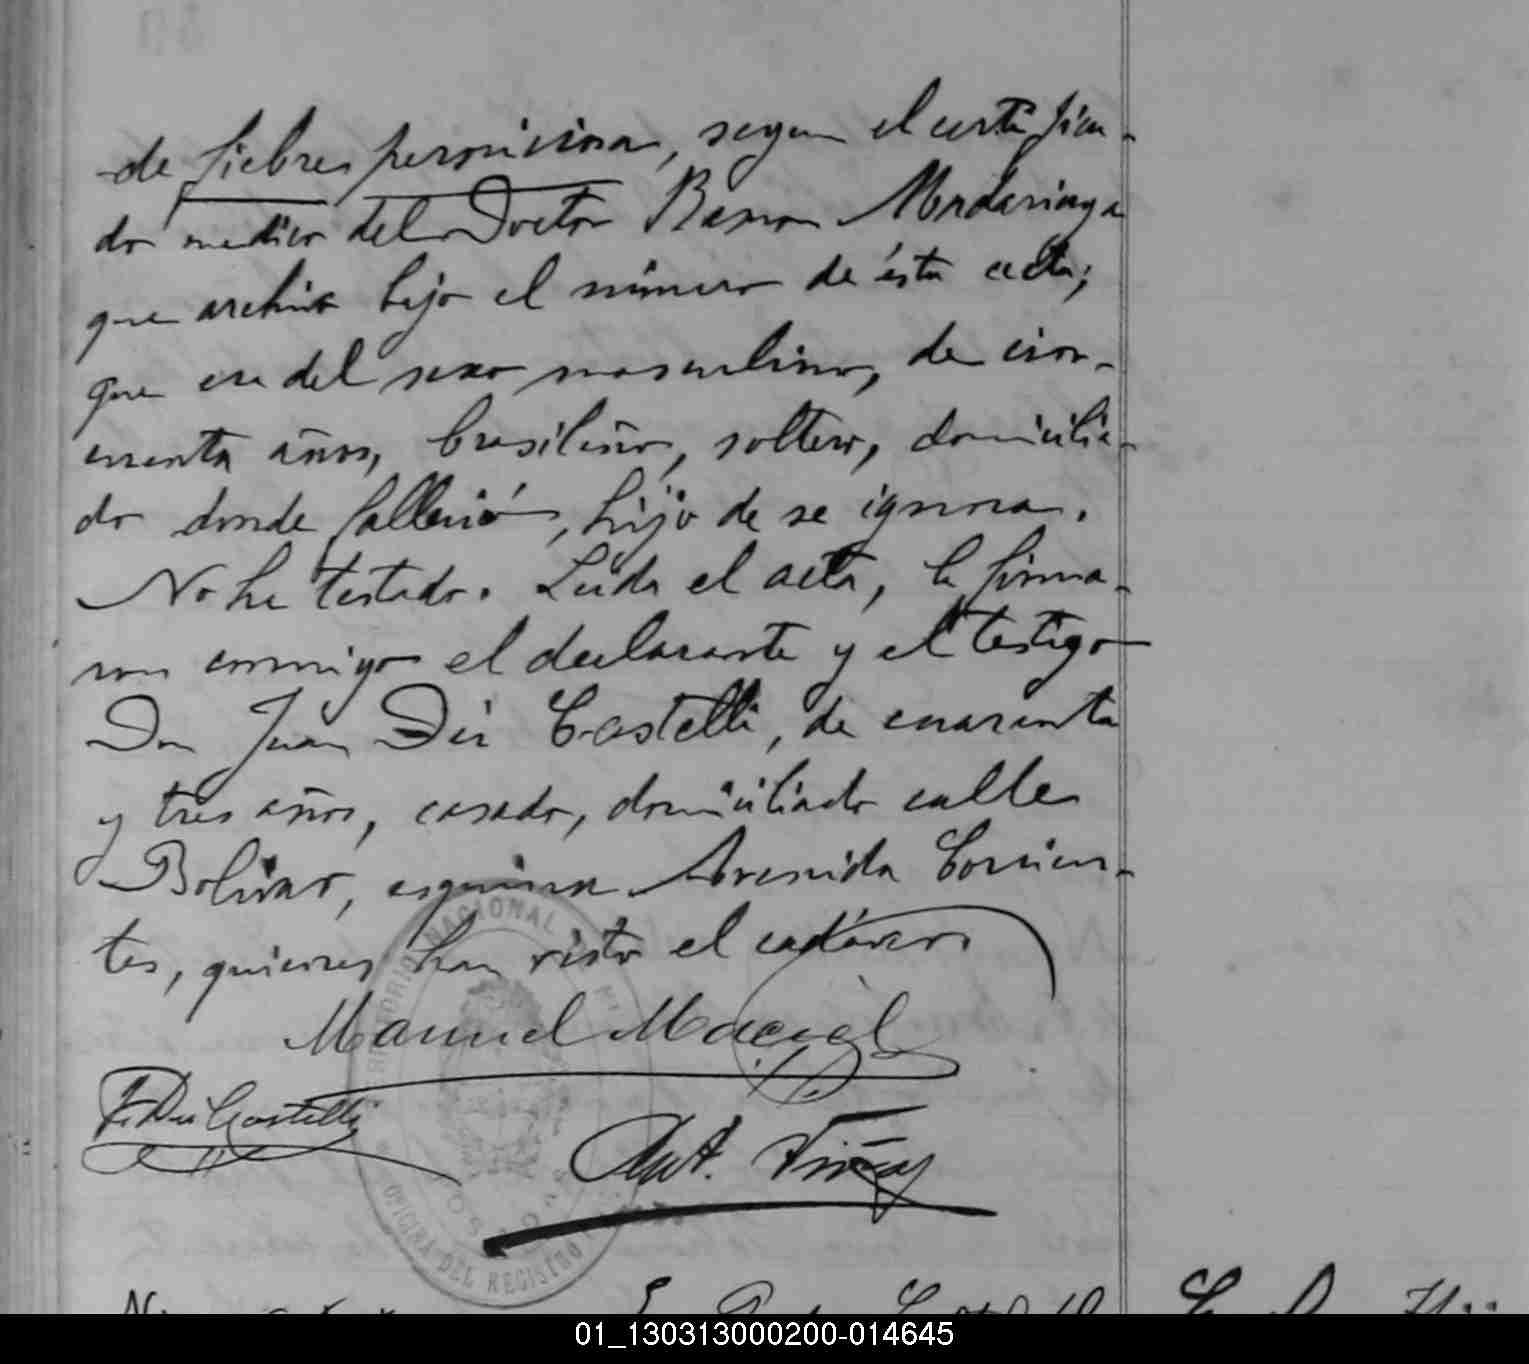 de fiebres perniciosa, segun el certifica-
do medico del Doctor Ramon Madariaga
que archivo bajo el número de ésta acta;
que era del sexo masculino, de cin-
cuenta años, brasileño, soltero, domicilia-
do donde falleció, hijo de se ignora.
No ha testado. Leida el acta, la firma-
ron conmigo el declarante y el testigo
Don Juan Dei Castelli, de cuarenta
y tres años, casado, domiciliado calle
Bolivar, esquina Avenida Corrien-
tes, quienes han visto el cadáver.
Manuel Maciel
J. Dei Castelli
Ant. Viñas
NACIONAL
OFICINA DEL REGISTRO
01_130313000200-014645